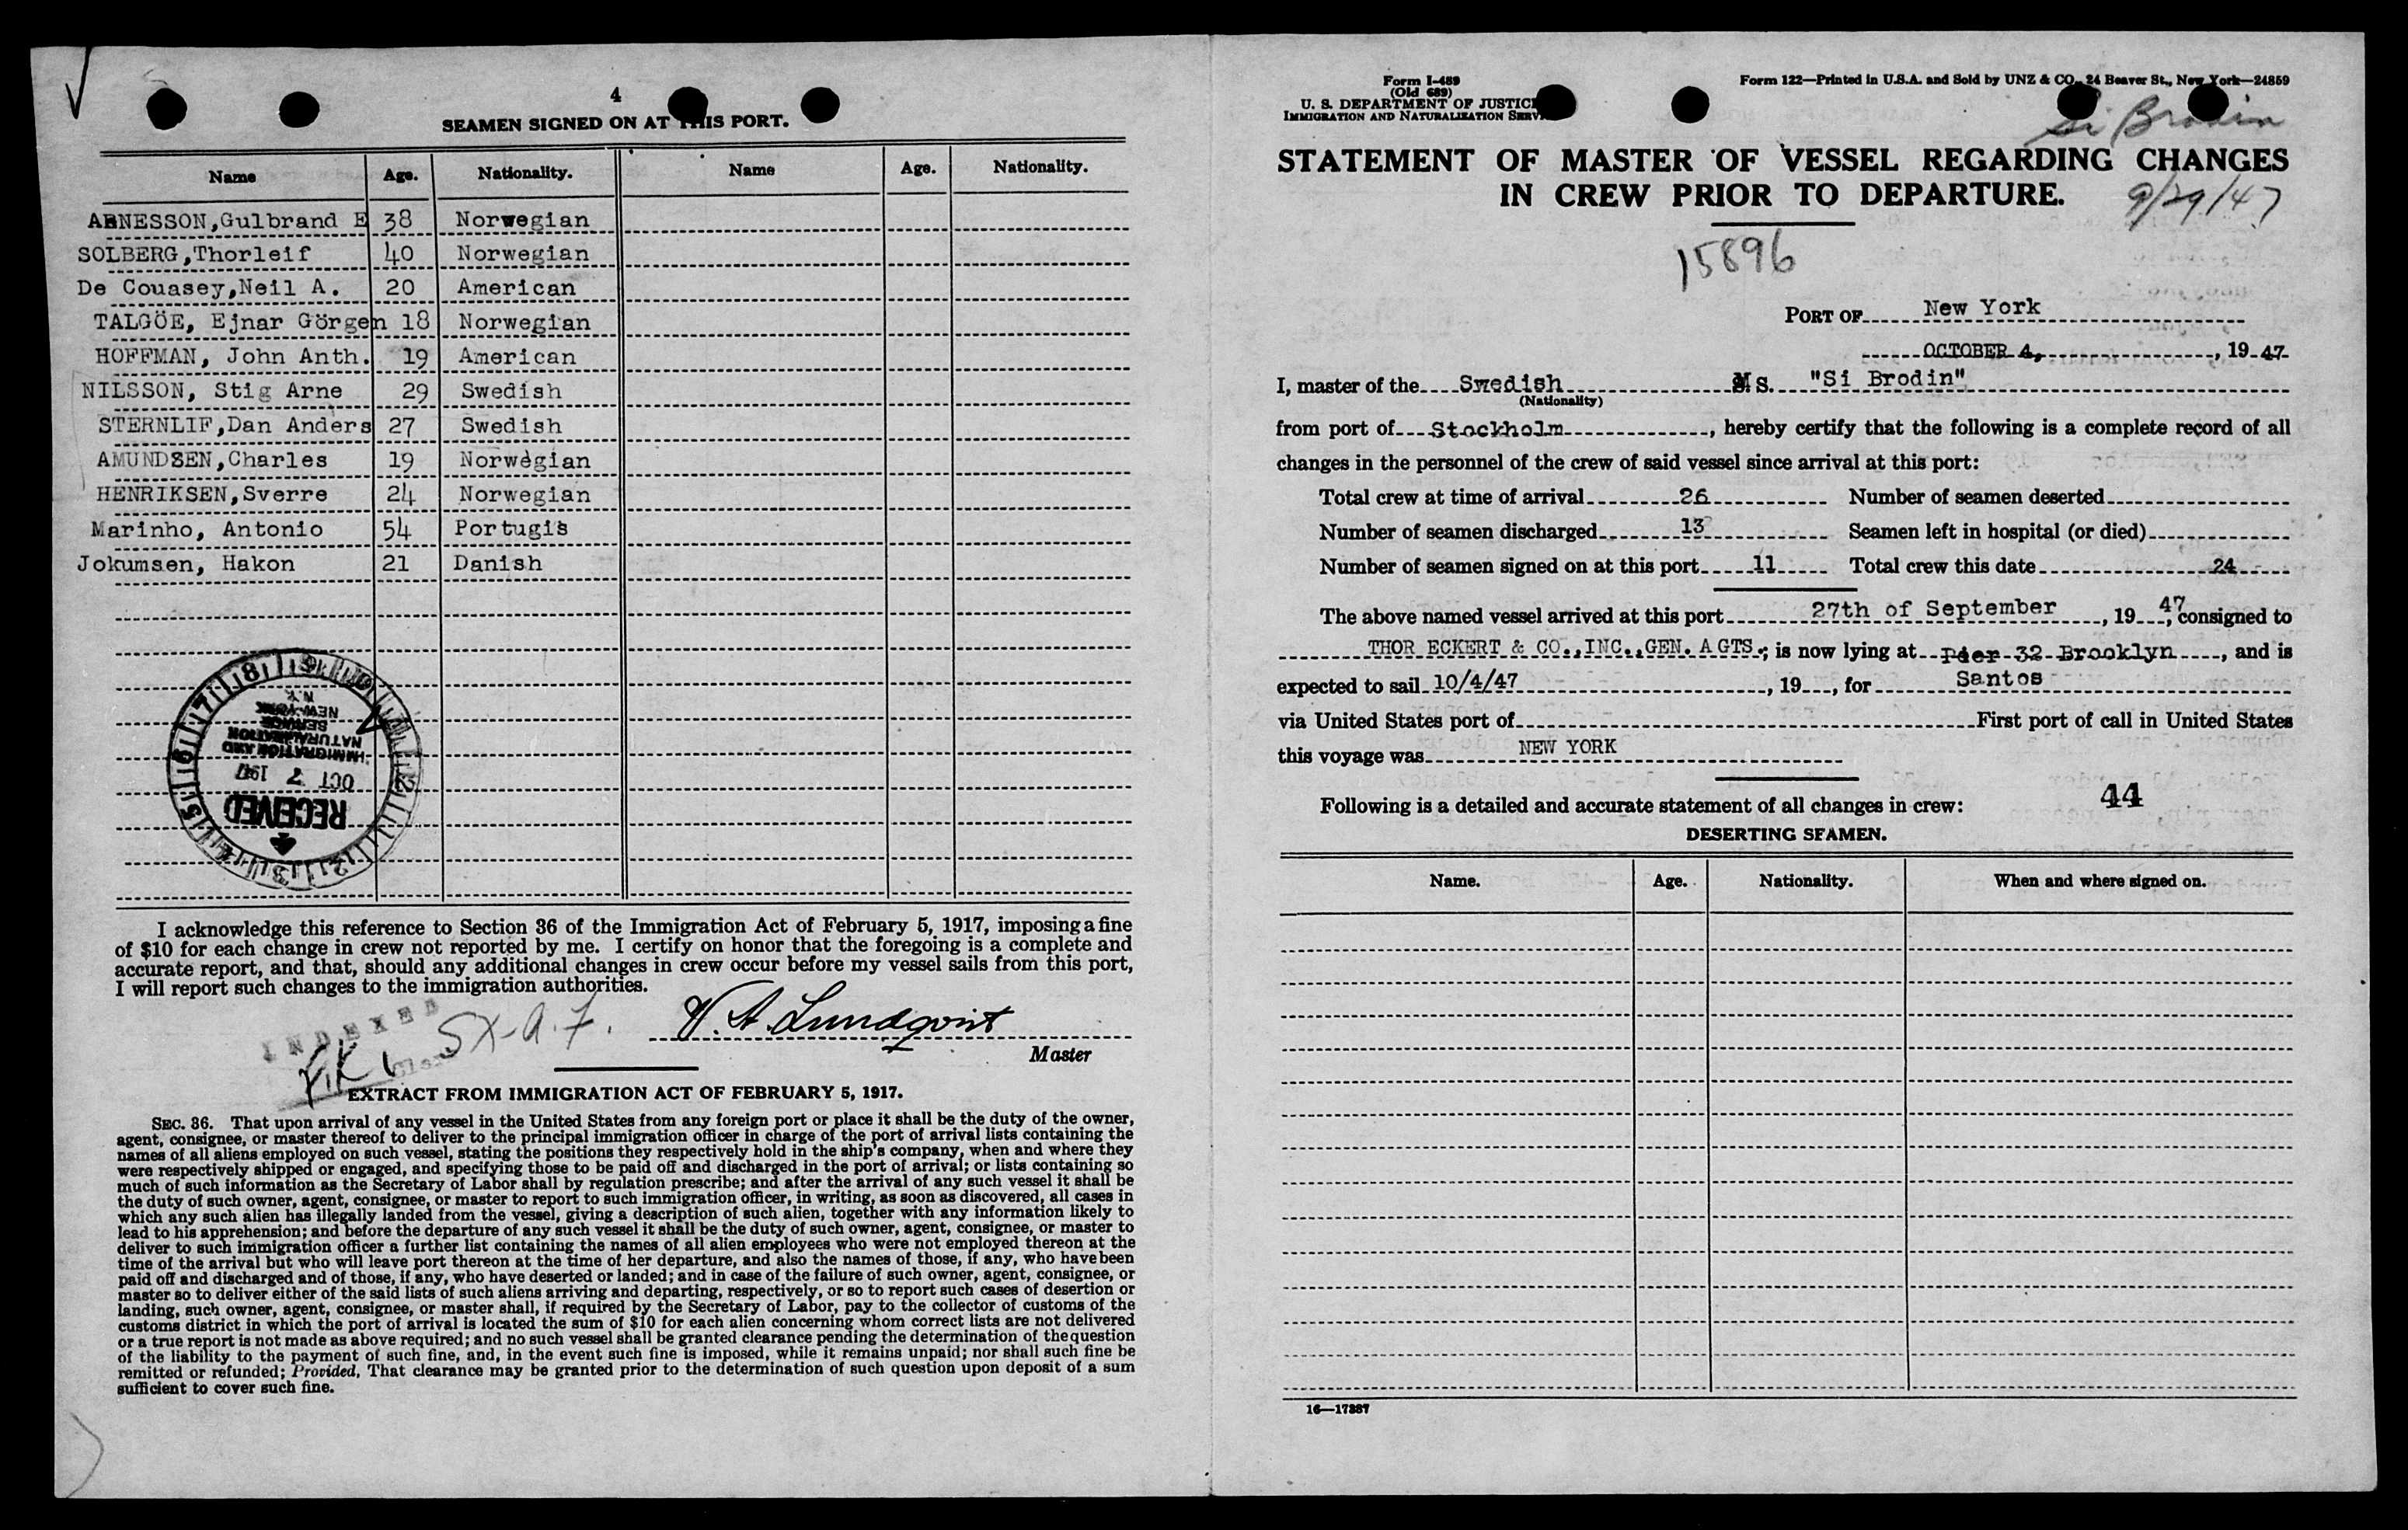 4
SEAMEN SIGNED ON AT THIS PORT.
Name Age. Nationality. Name Age. Nationality.
ABNESSON,Gulbrand E 38 Norwegian
SOLBERG,Thorleif 40 Norwegian
De Couasey,Neil A. 20 American
TALGÖE, Ejnar Görgen 18 Norwegian
HOFFMAN, John Anth. 19 American
NILSSON, Stig Arne 29 Swedish
STERNLIF,Dan Anders 27 Swedish
AMUNDSEN,Charles 19 Norwegian
HENRIKSEN,Sverre 24 Norwegian
Marinho, Antonio 54 Portugis
Jokumsen, Hakon 21 Danish
RECEIVED
OCT 7 1947
IMMIGRATION AND
NATURALIZATION
SERVICE
NEW YORK
N.Y.
I acknowledge this reference to Section 36 of the Immigration Act of February 5, 1917, imposing a fine
of $10 for each change in crew not reported by me. I certify on honor that the foregoing is a complete and
accurate report, and that, should any additional changes in crew occur before my vessel sails from this port,
I will report such changes to the immigration authorities.
INDEXED
SX-a.7.
V. A. Lundqvist
Master
EXTRACT FROM IMMIGRATION ACT OF FEBRUARY 5, 1917.
SEC. 36. That upon arrival of any vessel in the United States from any foreign port or place it shall be the duty of the owner,
agent, consignee, or master thereof to deliver to the principal immigration officer in charge of the port of arrival lists containing the
names of all aliens employed on such vessel, stating the positions they respectively hold in the ship's company, when and where they
were respectively shipped or engaged, and specifying those to be paid off and discharged in the port of arrival; or lists containing so
much of such information as the Secretary of Labor shall by regulation prescribe; and after the arrival of any such vessel it shall be
the duty of such owner, agent, consignee, or master to report to such immigration officer, in writing, as soon as discovered, all cases in
which any such alien has illegally landed from the vessel, giving a description of such alien, together with any information likely to
lead to his apprehension; and before the departure of any such vessel it shall be the duty of such owner, agent, consignee, or master to
deliver to such immigration officer a further list containing the names of all alien employees who were not employed thereon at the
time of the arrival but who will leave port thereon at the time of her departure, and also the names of those, if any, who have been
paid off and discharged and of those, if any, who have deserted or landed; and in case of the failure of such owner, agent, consignee, or
master so to deliver either of the said lists of such aliens arriving and departing, respectively, or so to report such cases of desertion or
landing, such owner, agent, consignee, or master shall, if required by the Secretary of Labor, pay to the collector of customs of the
customs district in which the port of arrival is located the sum of $10 for each alien concerning whom correct lists are not delivered
or a true report is not made as above required; and no such vessel shall be granted clearance pending the determination of the question
of the liability to the payment of such fine, and, in the event such fine is imposed, while it remains unpaid; nor shall such fine be
remitted or refunded; Provided, That clearance may be granted prior to the determination of such question upon deposit of a sum
sufficient to cover such fine.
Form I-489
(Old 689)
U. S. DEPARTMENT OF JUSTICE
IMMIGRATION AND NATURALIZATION SERV
Form 122—Printed in U.S.A. and Sold by UNZ & CO., 24 Beaver St., New York—24859
Si Brodin
STATEMENT OF MASTER OF VESSEL REGARDING CHANGES
IN CREW PRIOR TO DEPARTURE.
9/29/47
15896
PORT OF New York
OCTOBER 4, , 19 47
I, master of the Swedish M S. "Si Brodin"
(Nationality)
from port of Stockholm , hereby certify that the following is a complete record of all
changes in the personnel of the crew of said vessel since arrival at this port:
Total crew at time of arrival 26 Number of seamen deserted
Number of seamen discharged 13 Seamen left in hospital (or died)
Number of seamen signed on at this port 11 Total crew this date 24
The above named vessel arrived at this port 27th of September , 19 47, consigned to
THOR ECKERT & CO.,INC.,GEN. AGTS.; is now lying at Pier 32 Brooklyn , and is
expected to sail 10/4/47 , 19 , for Santos
via United States port of First port of call in United States
this voyage was NEW YORK
Following is a detailed and accurate statement of all changes in crew: 44
DESERTING SEAMEN.
Name. Age. Nationality. When and where signed on.
16—17387